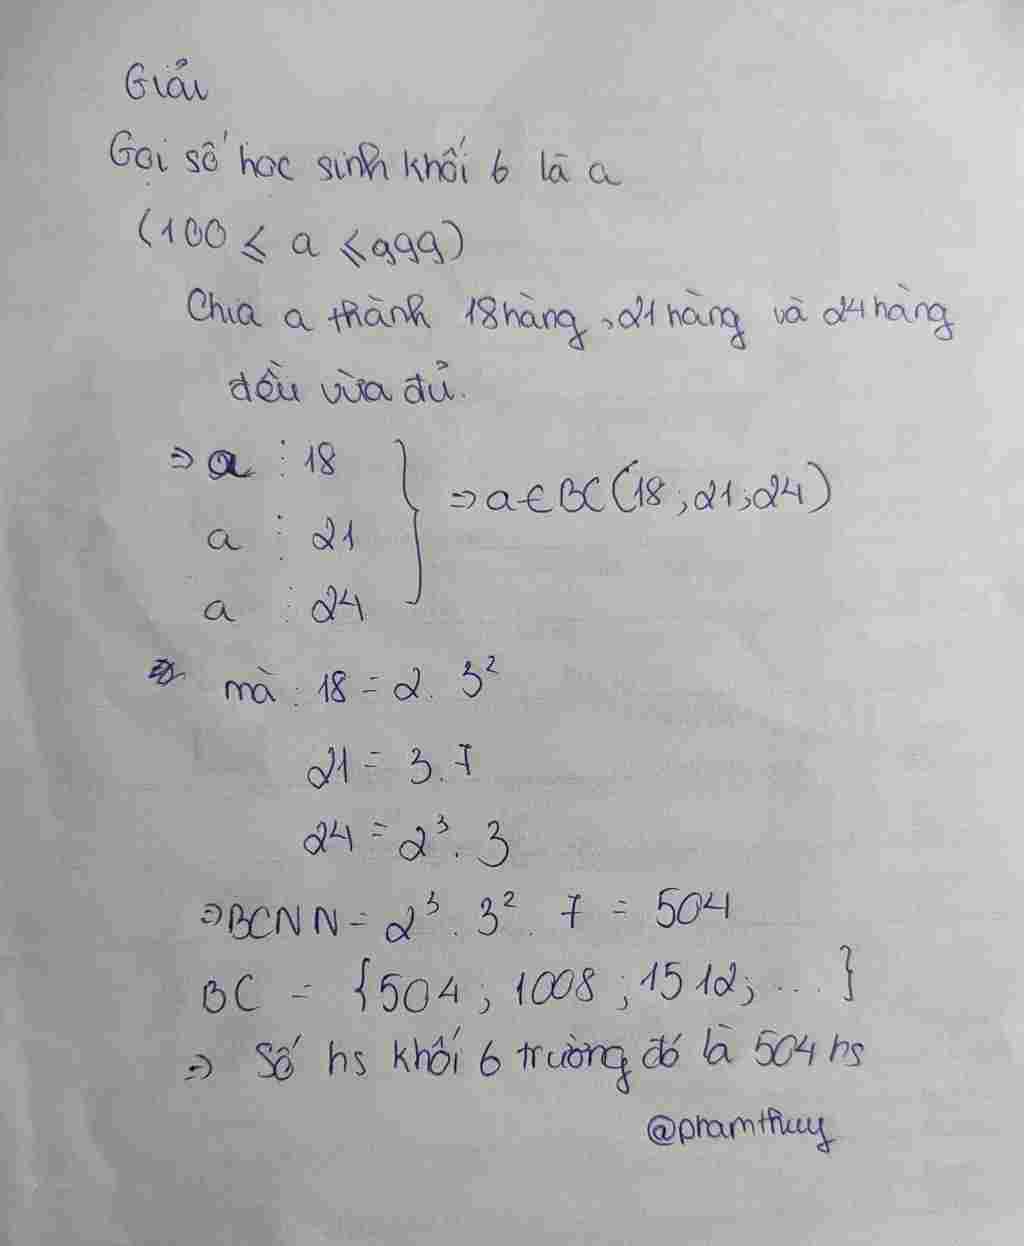 Giải
Gọi số học sinh khối 6 là a
(100 ≤ a ≤ 999)
Chia a thành 18 hàng, 21 hàng và 24 hàng
đều vừa đủ.
⇒ a ⋮ 18
a ⋮ 21
a ⋮ 24
} ⇒ a ∈ BC(18; 21; 24)
mà : 18 = 2 . 3²
21 = 3 . 7
24 = 2³ . 3
⇒ BCNN = 2³ . 3² . 7 = 504
BC = {504; 1008; 1512; ...}
⇒ Số hs khối 6 trường đó là 504 hs
@phamthuy